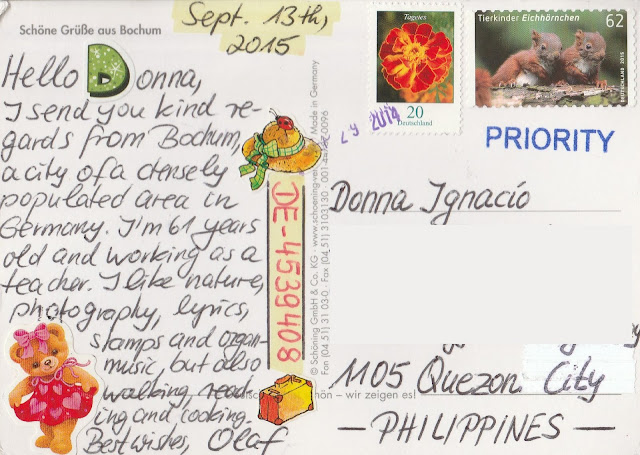 Schöne Grüße aus Bochum
Sept. 13th,
2015
Hello Donna,
I send you kind re-
gards from Bochum,
a city of a densely
populated area in
Germany. I'm 61 years
old and working as a
teacher. I like nature,
photography, lyrics,
stamps and organ-
music, but also
walking, read-
ing and cooking.
Best wishes, Olaf
DE-4539408
Tagetes
20
Deutschland
Tierkinder Eichhörnchen
62
DEUTSCHLAND 2015
2014
PRIORITY
Donna Ignacio
1105 Quezon City
— PHILIPPINES —
© Schöning GmbH & Co. KG
Made in Germany
Fon (04 51) 31 03-0 · Fax (04 51) 3103130
ön – wir zeigen es!